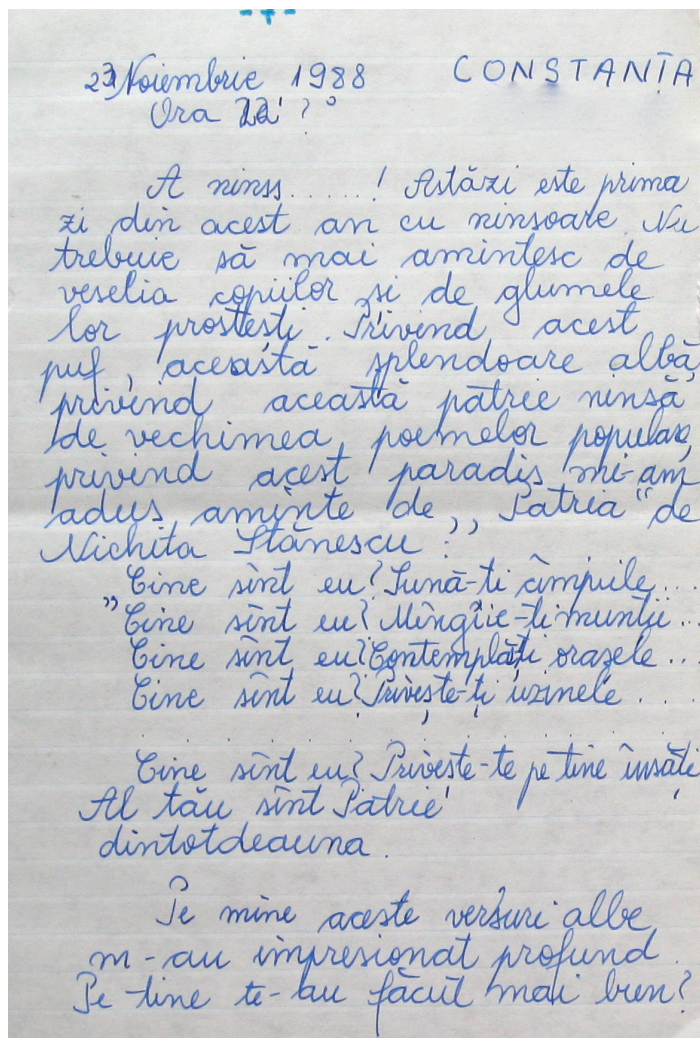 -7-
23 Noiembrie 1988 CONSTANȚA
Ora 22' ?°
A ninss......! Astăzi este prima
zi din acest an cu ninsoare. Nu
trebuie să mai amintesc de
veselia copiilor și de glumele
lor prostești. Privind acest
puf, această splendoare albă,
privind această patrie ninsă
de vechimea poemelor populare,
privind acest paradis mi-am
adus aminte de ,,Patria" de
Nichita Stănescu :
Cine sînt eu? Sună-ți cîmpiile...
"Cine sînt eu? Mîngîie-ți munții...
Cine sînt eu? Contemplă-ți orașele...
Cine sînt eu? Privește-ți uzinele...
. . . . . . . . . . . . . . .
Cine sînt eu? Privește-te pe tine însăți
Al tău sînt Patrie
dintotdeauna.
Pe mine aceste versuri albe
m-au impresionat profund.
Pe tine te-au făcut mai bun?